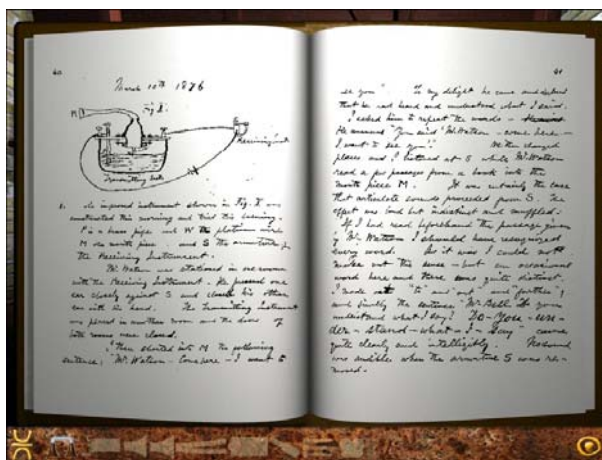 40
March 10th 1876
M
Fig. 1.
Receiving Inst.
Transmitting Inst.
1. The improved instrument shown in Fig. 1 was
constructed this morning and tried this evening.
P is a brass pipe and W the platinum wire
M the mouth piece and S the armature of
the Receiving Instrument.
Mr. Watson was stationed in one room
with the Receiving Instrument. He pressed one
ear closely against S and closed his other
ear with his hand. The Transmitting Instrument
was placed in another room and the doors of
both rooms were closed.
I then shouted into M the following
sentence: "Mr. Watson - Come here - I want to
41
see you". To my delight he came and declared
that he had heard and understood what I said.
I asked him to repeat the words -
He answered "You said 'Mr. Watson - come here -
I want to see you'." We then changed
places and I listened at S while Mr. Watson
read a few passages from a book into the
mouth piece M. It was certainly the case
that articulate sounds proceeded from S. The
effect was loud but indistinct and muffled.
If I had read beforehand the passage given
by Mr. Watson I should have recognized
every word. As it was I could not
make out the sense - but an occasional
word here and there was quite distinct.
I made out "to" and "out" and "further";
and finally the sentence "Mr. Bell do you
understand what I say? Do-you-un-
der-stand-what-I-say" came
quite clearly and intelligibly. No sound
was audible when the armature S was re-
moved.